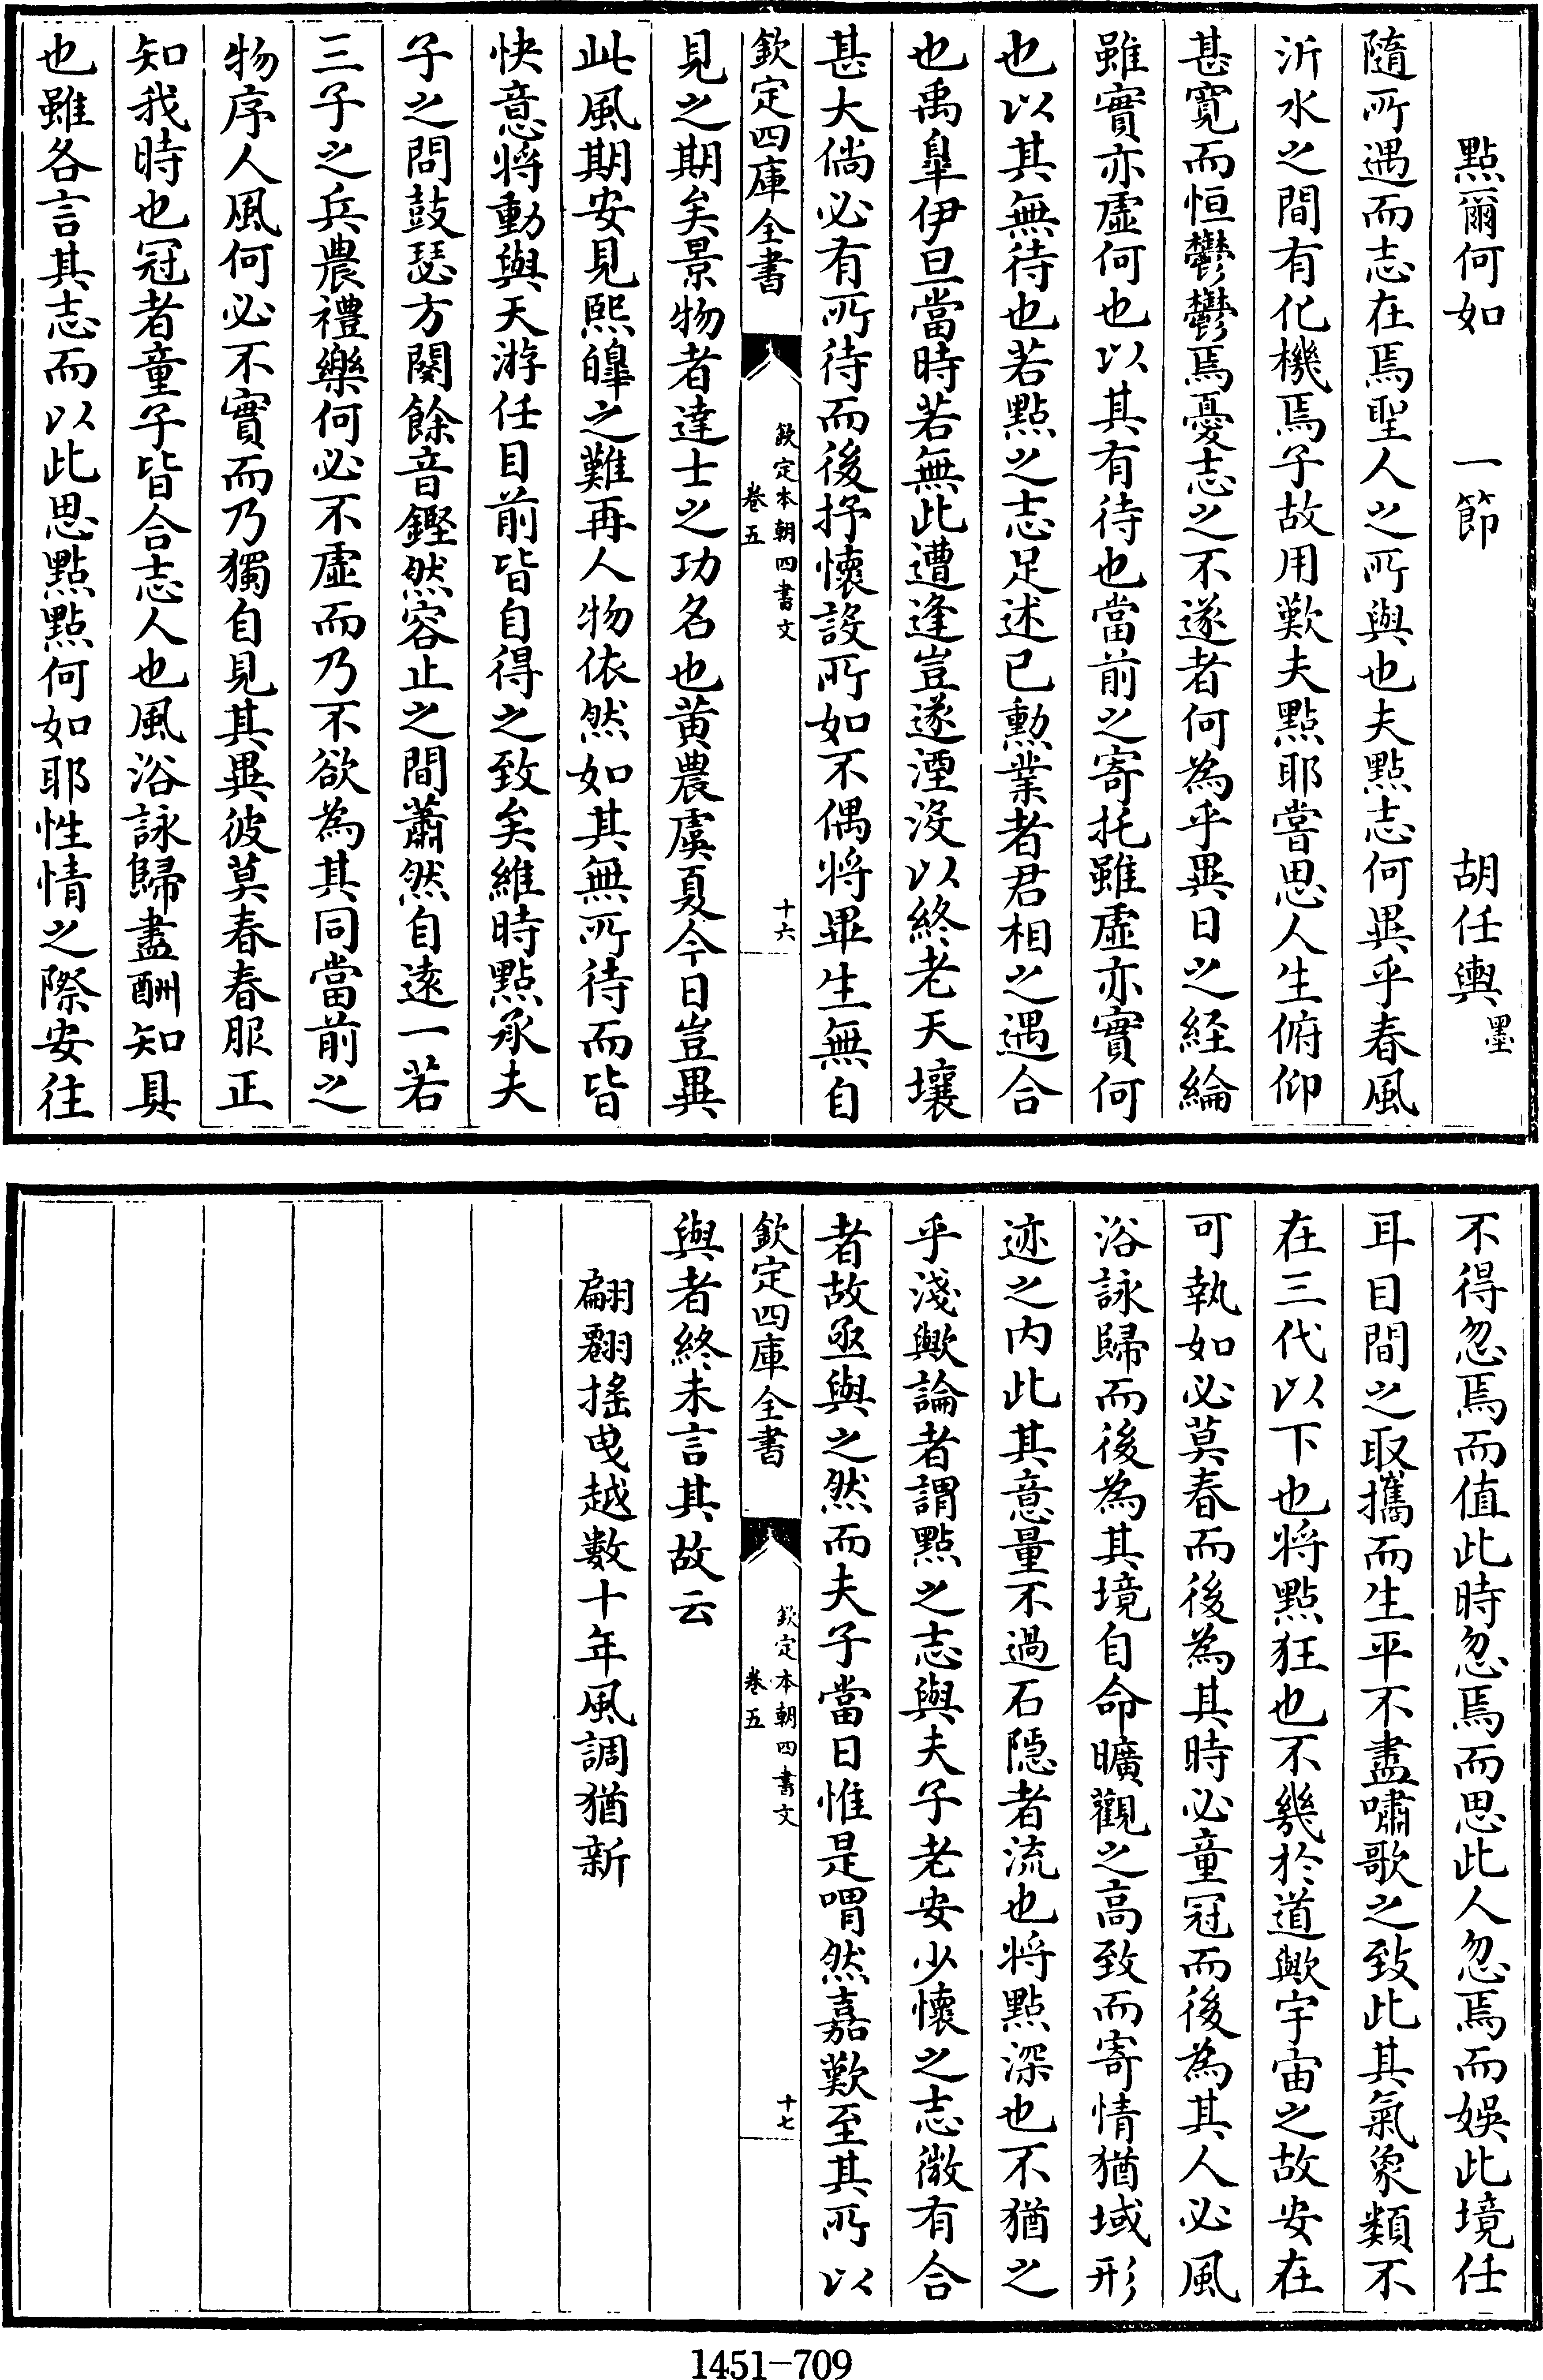 點爾何如　一節　胡任輿墨
隨所遇而志在焉聖人之所與也夫點志何異乎春風
沂水之間有化機焉子故用歎夫點耶嘗思人生俯仰
甚寬而恒鬱鬱焉憂志之不遂者何為乎異日之経綸
雖實亦虛何也以其有待也當前之寄托雖虛亦實何
也以其無待也若點之志足述已勲業者君相之遇合
也禹臯伊旦當時若無此遭逢豈遂湮沒以終老天壤
甚大倘必有所待而後抒懷設所如不偶將畢生無自
欽定四庫全書
欽定本朝四書文
卷五
十六
見之期矣景物者達士之功名也黄農虞夏今日豈異
此風期安見熙皥之難再人物依然如其無所待而皆
快意將動與天游任目前皆自得之致矣維時點承夫
子之問鼓瑟方闋餘音鏗然容止之間蕭然自遠一若
三子之兵農禮樂何必不虛而乃不欲為其同當前之
物序人風何必不實而乃獨自見其異彼莫春春服正
知我時也冠者童子皆合志人也風浴詠歸盡酬知具
也雖各言其志而以此思點點何如耶性情之際安往
不得忽焉而值此時忽焉而思此人忽焉而娛此境任
耳目間之取攜而生平不盡嘯歌之致此其氣象類不
在三代以下也將點狂也不幾於道歟宇宙之故安在
可執如必莫春而後為其時必童冠而後為其人必風
浴詠歸而後為其境自命曠觀之高致而寄情猶域形
迹之内此其意量不過石隱者流也將點深也不猶之
乎淺歟論者謂點之志與夫子老安少懷之志微有合
者故亟與之然而夫子當日惟是喟然嘉歎至其所以
欽定四庫全書
欽定本朝四書文
卷五
十七
與者終未言其故云
翩翻搖曵越數十年風調猶新
1451-709